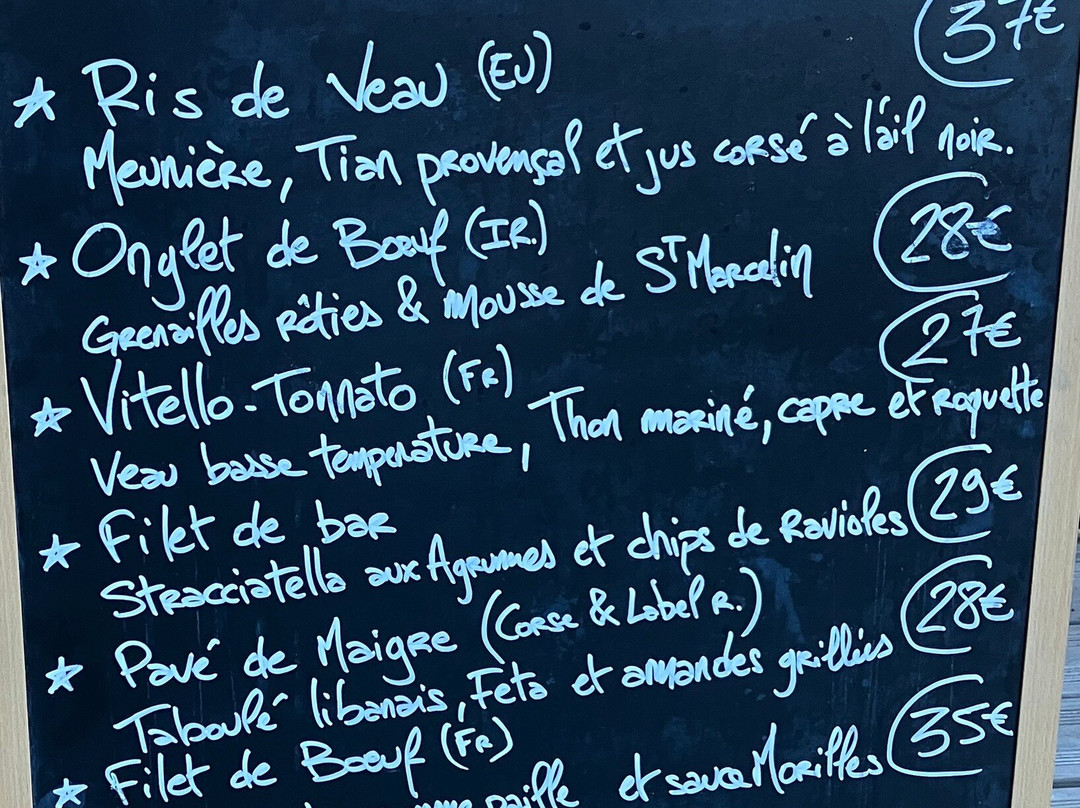 37€
★ Ris de Veau (EU)
Meunière, Tian provençal et jus corsé à l'ail noir.
★ Onglet de Boeuf (IR.) 28€
Grenailles rôties & mousse de ST Marcelin
★ Vitello-Tonnato (FR) 27€
Veau basse temperature, Thon mariné, capre et roquette
★ Filet de bar 29€
Stracciatella aux Agrumes et chips de Ravioles
★ Pavé de Maigre (Corse & Label R.) 28€
Taboulé libanais, Feta et amandes grillées
★ Filet de Boeuf (FR) 35€
paille et sauce Morilles